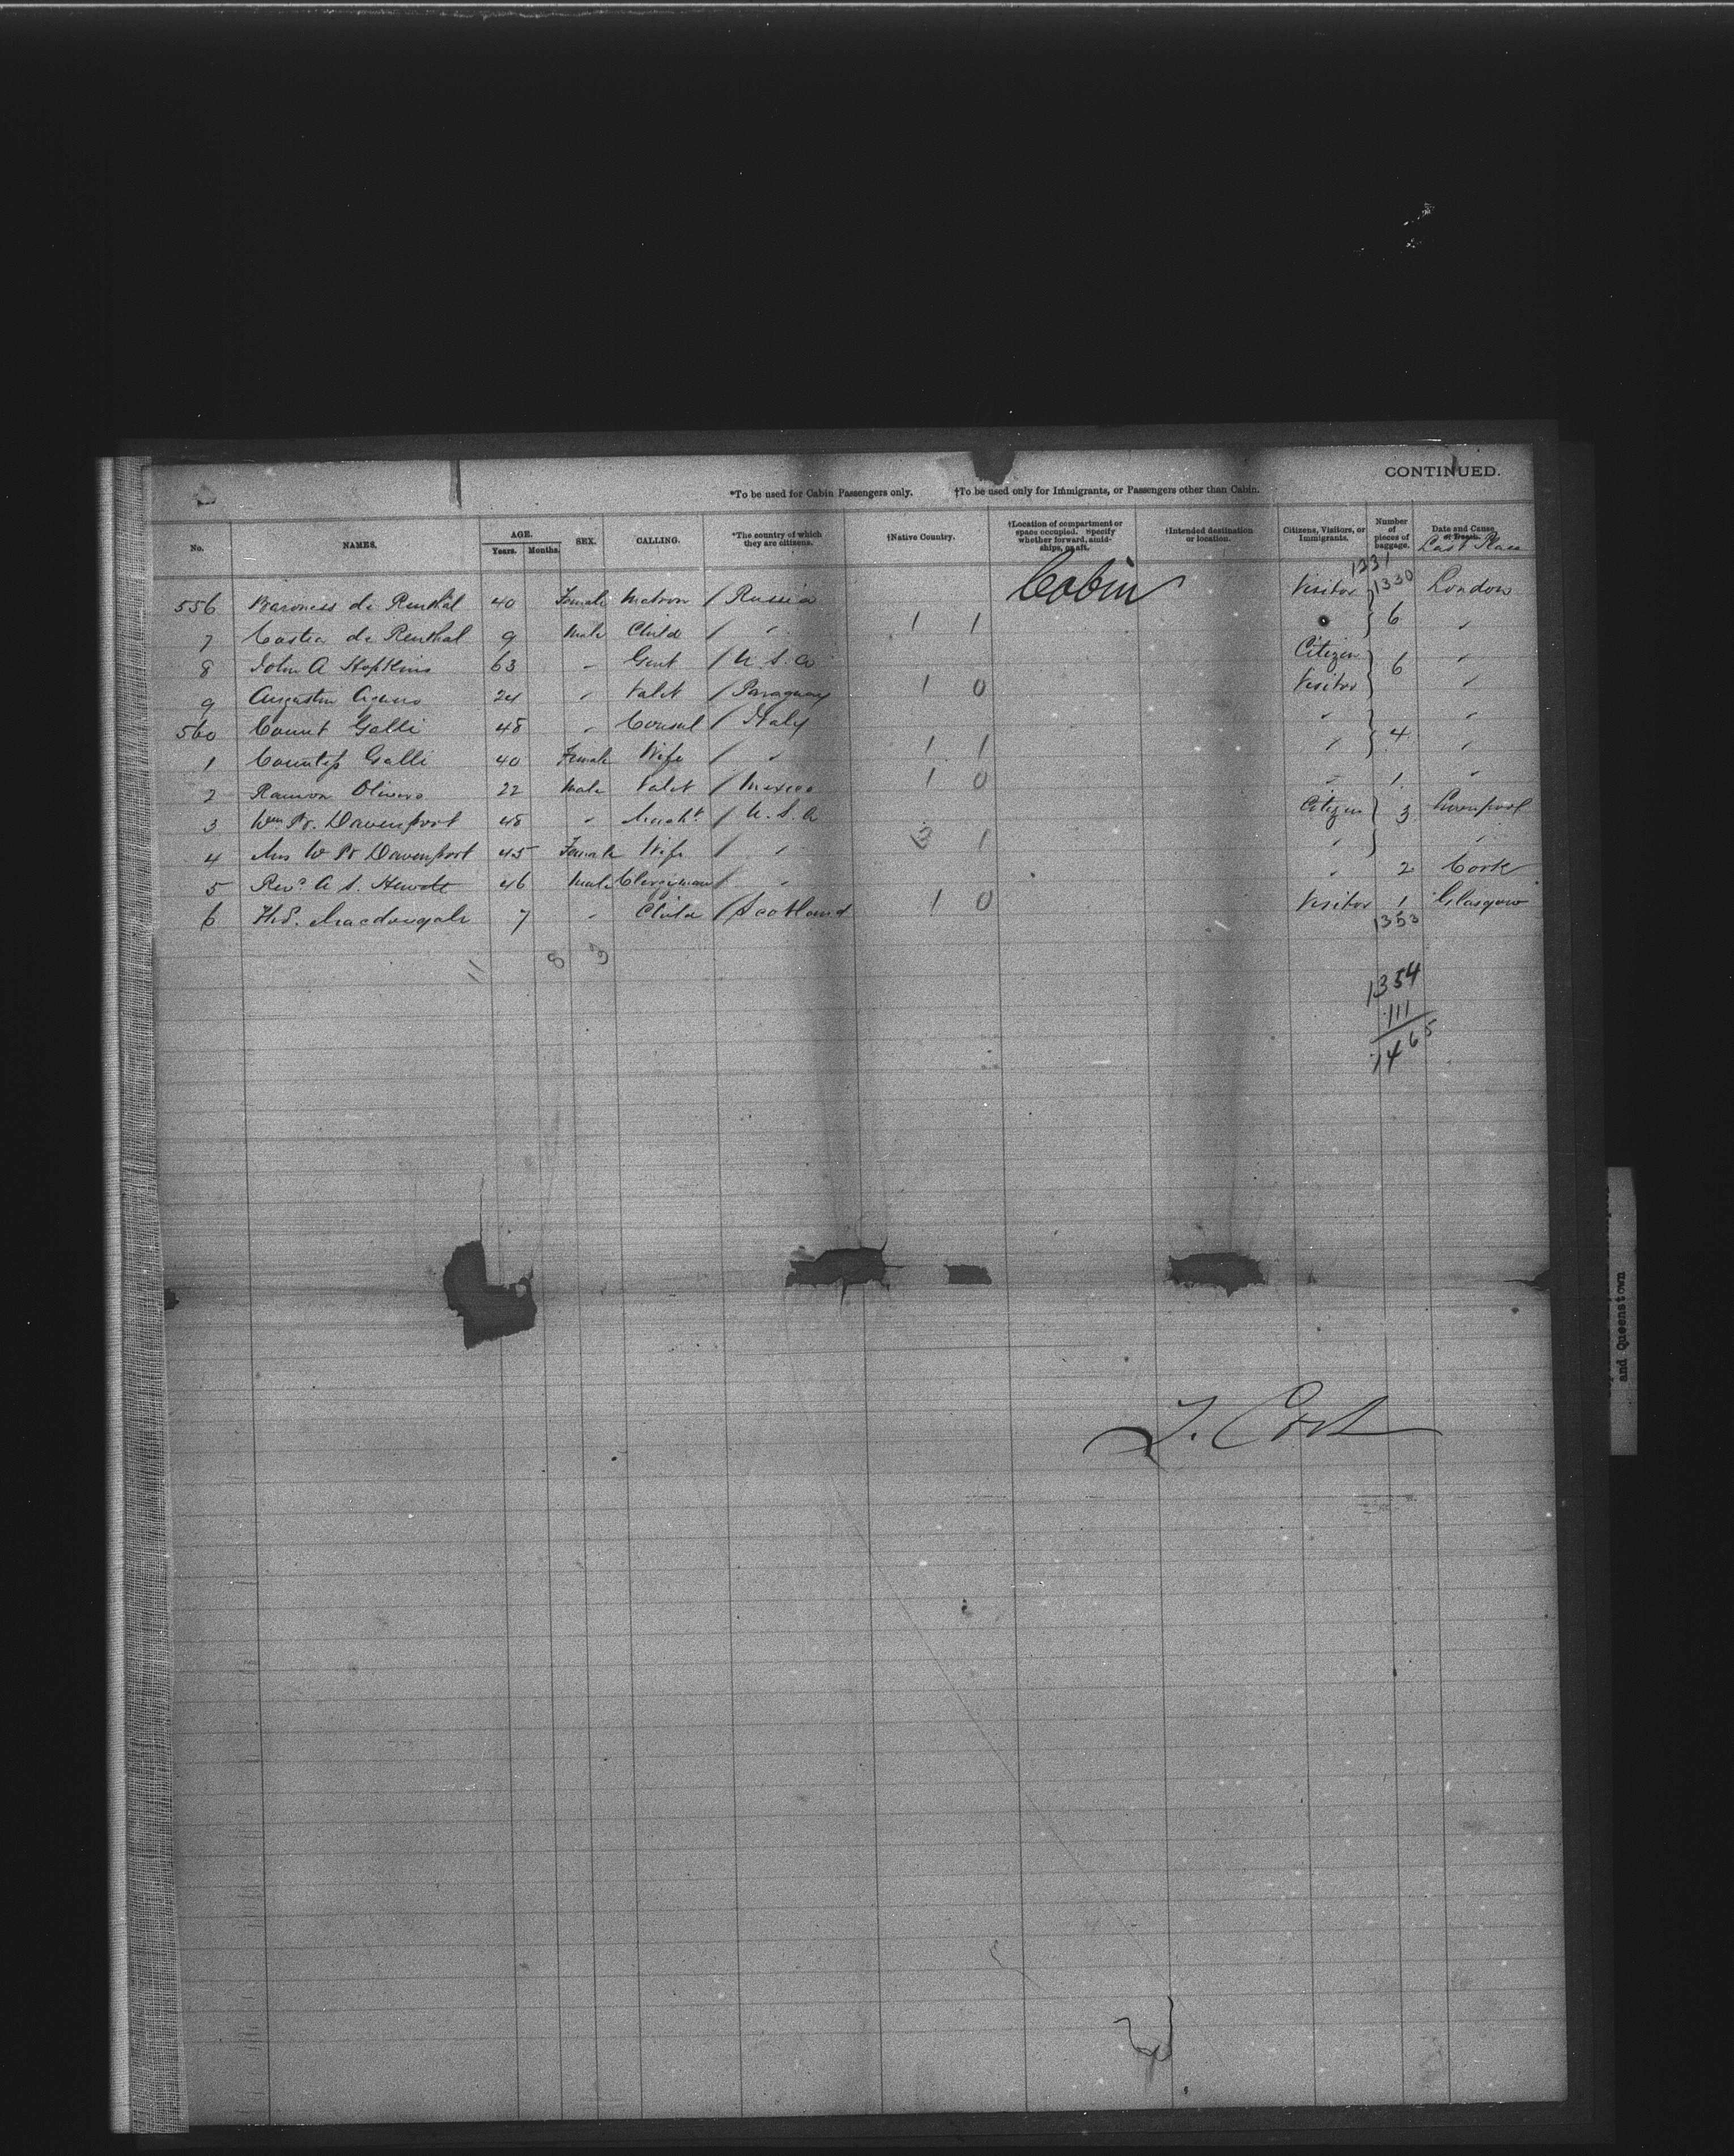 CONTINUED.
*To be used for Cabin Passengers only. †To be used only for Immigrants, or Passengers other than Cabin.
No. NAMES. AGE. Years. Months. SEX. CALLING. *The country of which they are citizens. †Native Country. †Location of compartment or space occupied. Specify whether forward, amidships, or aft. †Intended destination or location. Citizens, Visitors, or Immigrants. Number of pieces of baggage. Date and Cause of Death. Last Place
Cabin 1331
556 Baroness de Renthal 40 Female Matron / Russia Visitor 1330 London
7 de Renthal 9 Male Child / " 1 1 6 "
8 John A Hopkins 63 " Gent / U.S.A Citizen 6 "
9 Augustin 24 " Valet / Paraguay 1 0 Visitor "
560 Count Galli 48 " Consul / Italy " 4 "
1 Countess Galli 40 Female Wife / " 1 1 " "
2 Ramon Olivero 22 Male Valet / Mexico 1 0 " 1 "
3 Wm Pr. Davenport 48 " Mercht / U.S.A Citizen 3 Liverpool
4 Mrs W Pr Davenport 45 Female Wife / " 3 1 " "
5 Revd A S. 46 Male Clergyman / " " 2 Cork
6 Macdougal 7 " Child / Scotland 1 0 Visitor 1 Glasgow
1353
11 8 3
1354
111
1465
and Queenstown